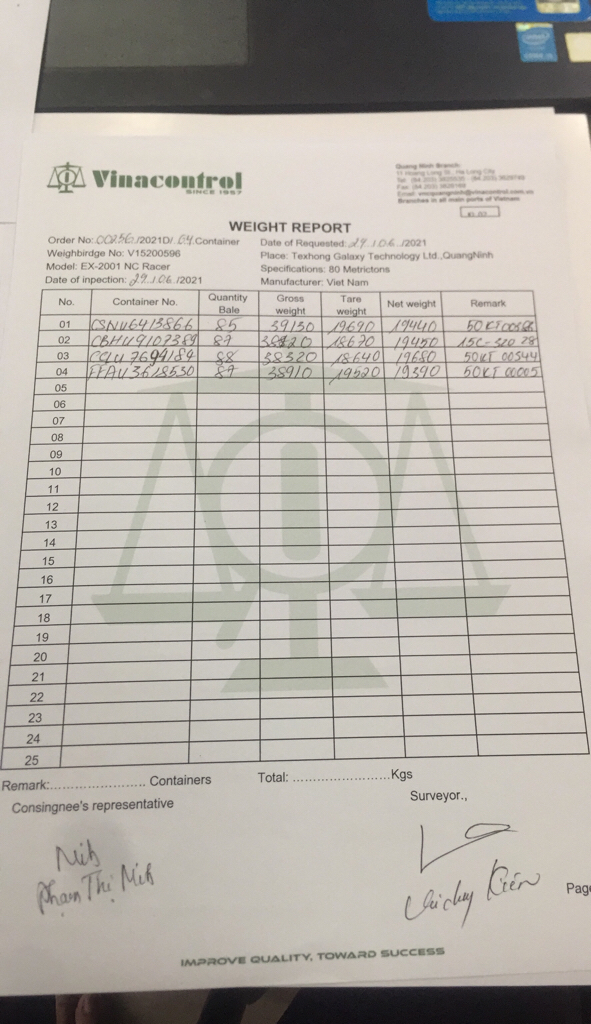 Vinacontrol
SINCE 1957
Quang Ninh Branch:
Branches in all main ports of Vietnam
WEIGHT REPORT
Order No: /2021D/ 04 Container
Date of Requested: 29 / 06 /2021
Weighbirdge No: V15200596
Place: Texhong Galaxy Technology Ltd.,QuangNinh
Model: EX-2001 NC Racer
Specifications: 80 Metrictons
Date of inpection: 29 / 06 /2021
Manufacturer: Viet Nam
No. Container No. Quantity Bale Gross weight Tare weight Net weight Remark
01 CSNU6413866 85 39130 19690 19440
02 87 18670 19450
03 88 38320 18640 19680 50KT 00544
04 FFAU3618530 87 38910 19520 19390 50KT 00005
05
06
07
08
09
10
11
12
13
14
15
16
17
18
19
20
21
22
23
24
25
Remark:........................ Containers Total: ........................Kgs
Consingnee's representative
Surveyor.,
Phạm Thị
Kiên
Page
IMPROVE QUALITY, TOWARD SUCCESS